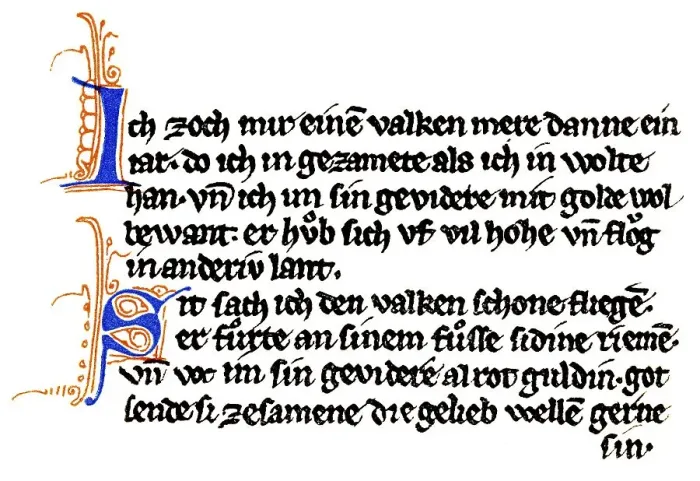 Ich zoch mir einē valken mere danne ein
iar· do ich in gezamete als ich in wolte
han· vn̄ ich im sin gevidere mit golde wol
bewant· er hv̊b sich vf vil hohe vn̄ flo̊g
in anderiv lant.
Sit sach ich den valken schone fliegē·
er fůrte an sinem fůsse sidine riemē·
vn̄ wc im sin gevidere alrot guldin· got
sende si zesamene die gelieb wellē gerne
sin·